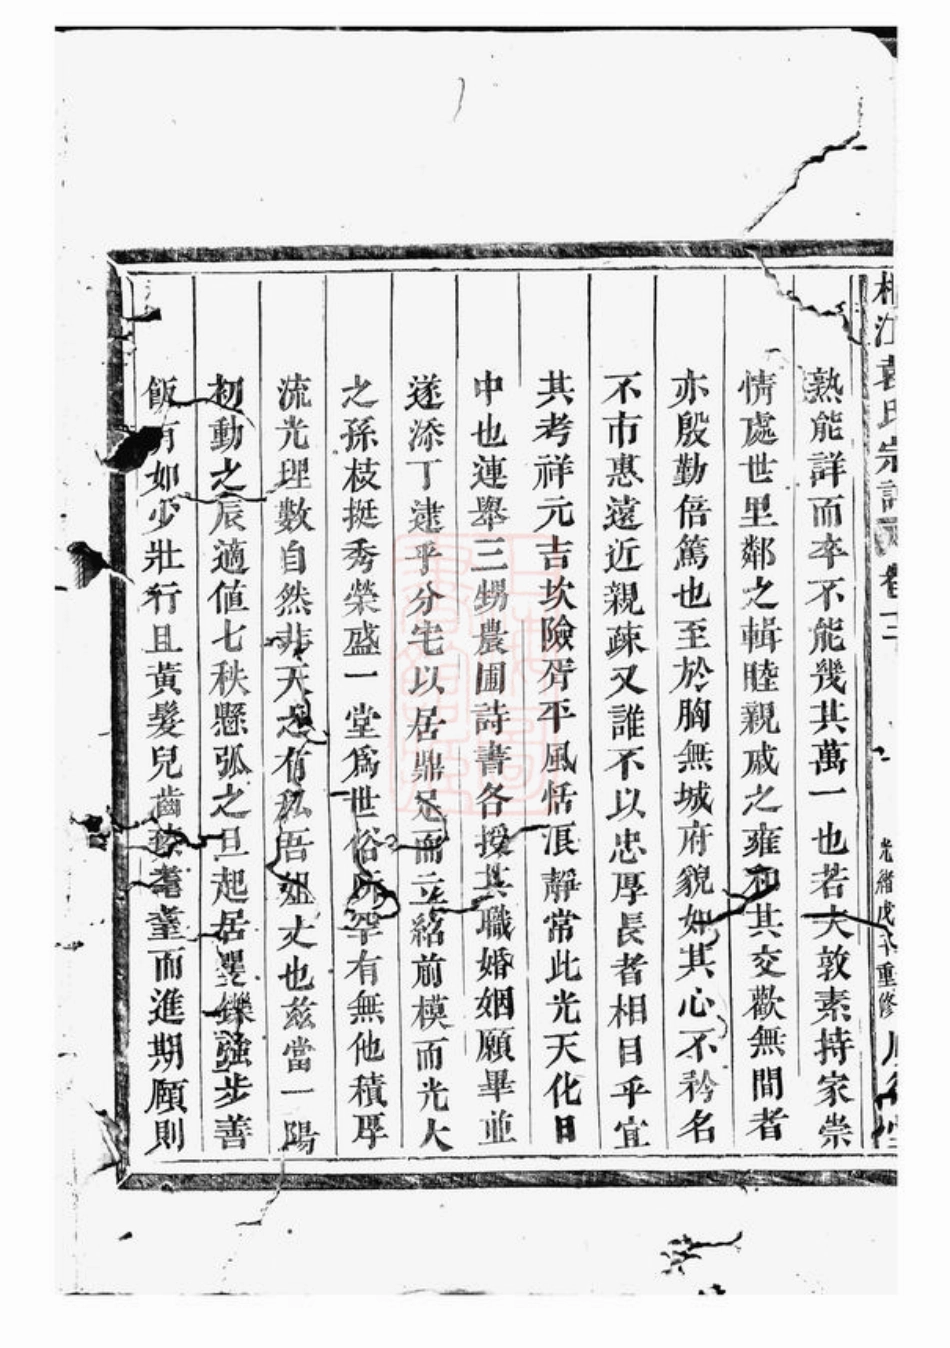 江袁氏宗譜
卷十三
光緒戊子重修
孰能詳而卒不能幾其萬一也若夫敦素持家崇
情處世里鄰之輯睦親戚之雍和其交歡無間者
亦殷勤倍篤也至於胸無城府貌如其心不矜名
不市惠遠近親疎又誰不以忠厚長者相目乎宜
其考祥元吉坎險胥平風恬浪靜常此光天化日
中也連舉三甥農圃詩書各授其職婚姻願畢並
遂添丁逮乎分宅以居鼎足而立紹前模而光大
之孫枝挺秀榮盛一堂爲世俗所罕有無他積厚
流光理數自然非天之有私吾姐丈也茲當一陽
初動之辰適值七秩懸弧之旦起居矍鑠強步善
飯有如少壯行且黃髮兒齒 耄耋而進期頤則